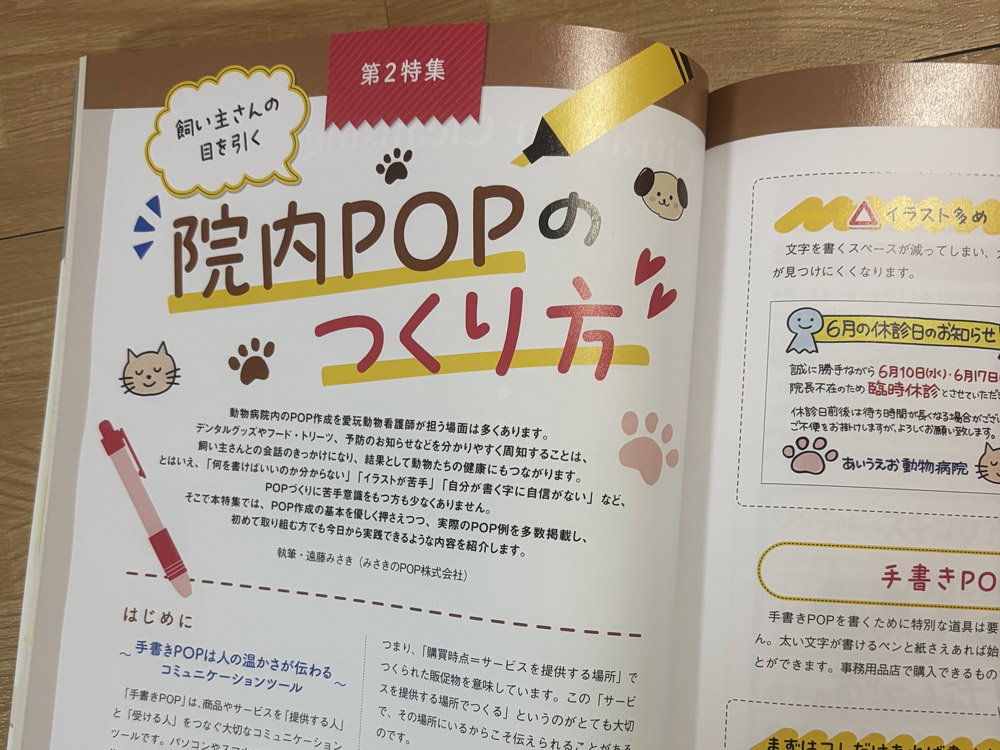 第2特集
飼い主さんの
目を引く
院内POPの
つくり方
動物病院内のPOP作成を愛玩動物看護師が担う場面は多くあります。
デンタルグッズやフード・トリーツ、予防のお知らせなどを分かりやすく周知することは、
飼い主さんとの会話のきっかけになり、結果として動物たちの健康にもつながります。
とはいえ、「何を書けばいいのか分からない」「イラストが苦手」「自分が書く字に自信がない」など、
POPづくりに苦手意識をもつ方も少なくありません。
そこで本特集では、POP作成の基本を優しく押さえつつ、実際のPOP例を多数掲載し、
初めて取り組む方でも今日から実践できるような内容を紹介します。
執筆・遠藤みさき（みさきのPOP株式会社）
はじめに
～手書きPOPは人の温かさが伝わる
コミュニケーションツール～
「手書きPOP」は、商品やサービスを「提供する人」
と「受ける人」をつなぐ大切なコミュニケーション
ツールです。パソコンやスマ
つまり、「購買時点＝サービスを提供する場所」で
つくられた販促物を意味しています。この「サービ
スを提供する場所でつくる」というのがとても大切
で、その場所にいるからこそ伝えられることがある
のです。
△イラスト多め
文字を書くスペースが減ってしまい、
が見つけにくくなります。
6月の休診日のお知らせ
誠に勝手ながら6月10日(水)・6月17日
院長不在のため臨時休診とさせていただ
休診日前後は待ち時間が長くなる場合がござい
ご不便をお掛けしますが、よろしくお願い致します。
あいうえお動物病院
手書きPO
手書きPOPを書くために特別な道具は要
ん。太い文字が書けるペンと紙さえあれば始
とができます。事務用品店で購入できるもの